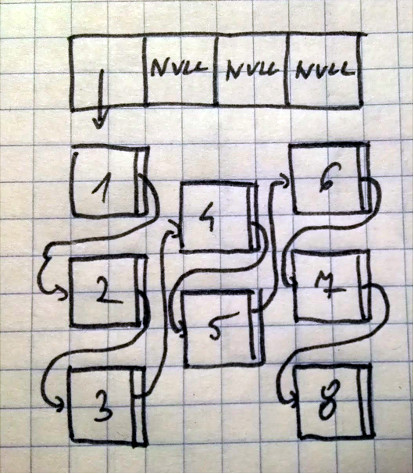 NULL NULL NULL
1
2
3
4
5
6
7
8